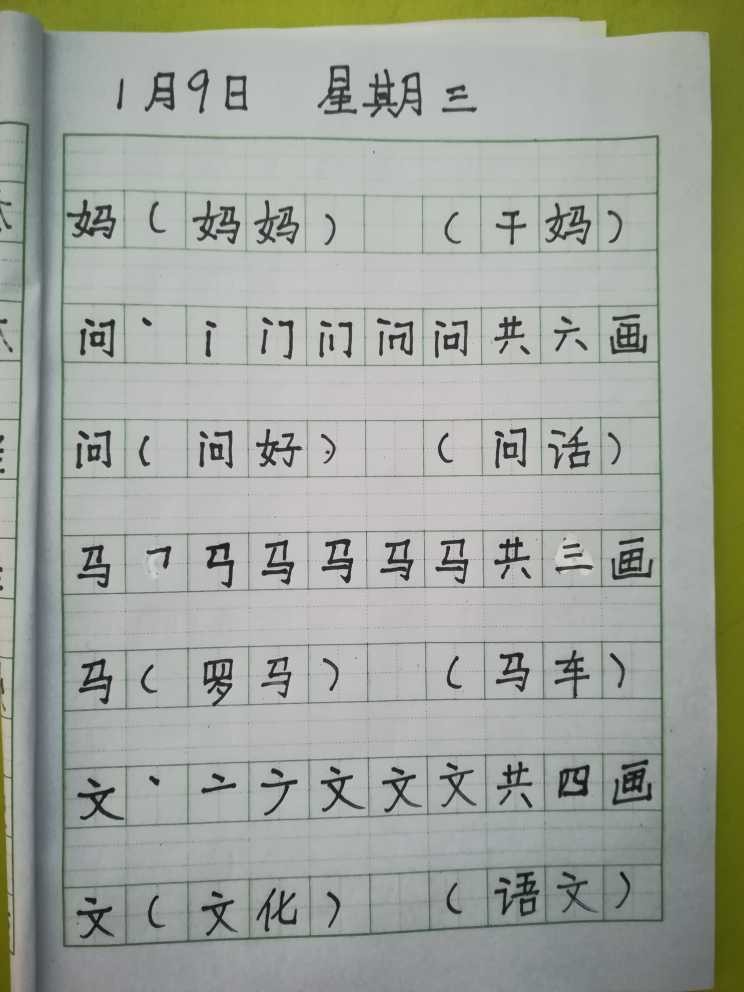 1月9日 星期三
妈（妈妈） （干妈）
问丶丨门问问问共六画
问（问好） （问话）
马㇕马马马马马共三画
马（罗马） （马车）
文丶亠ナ文文文共四画
文（文化） （语文）